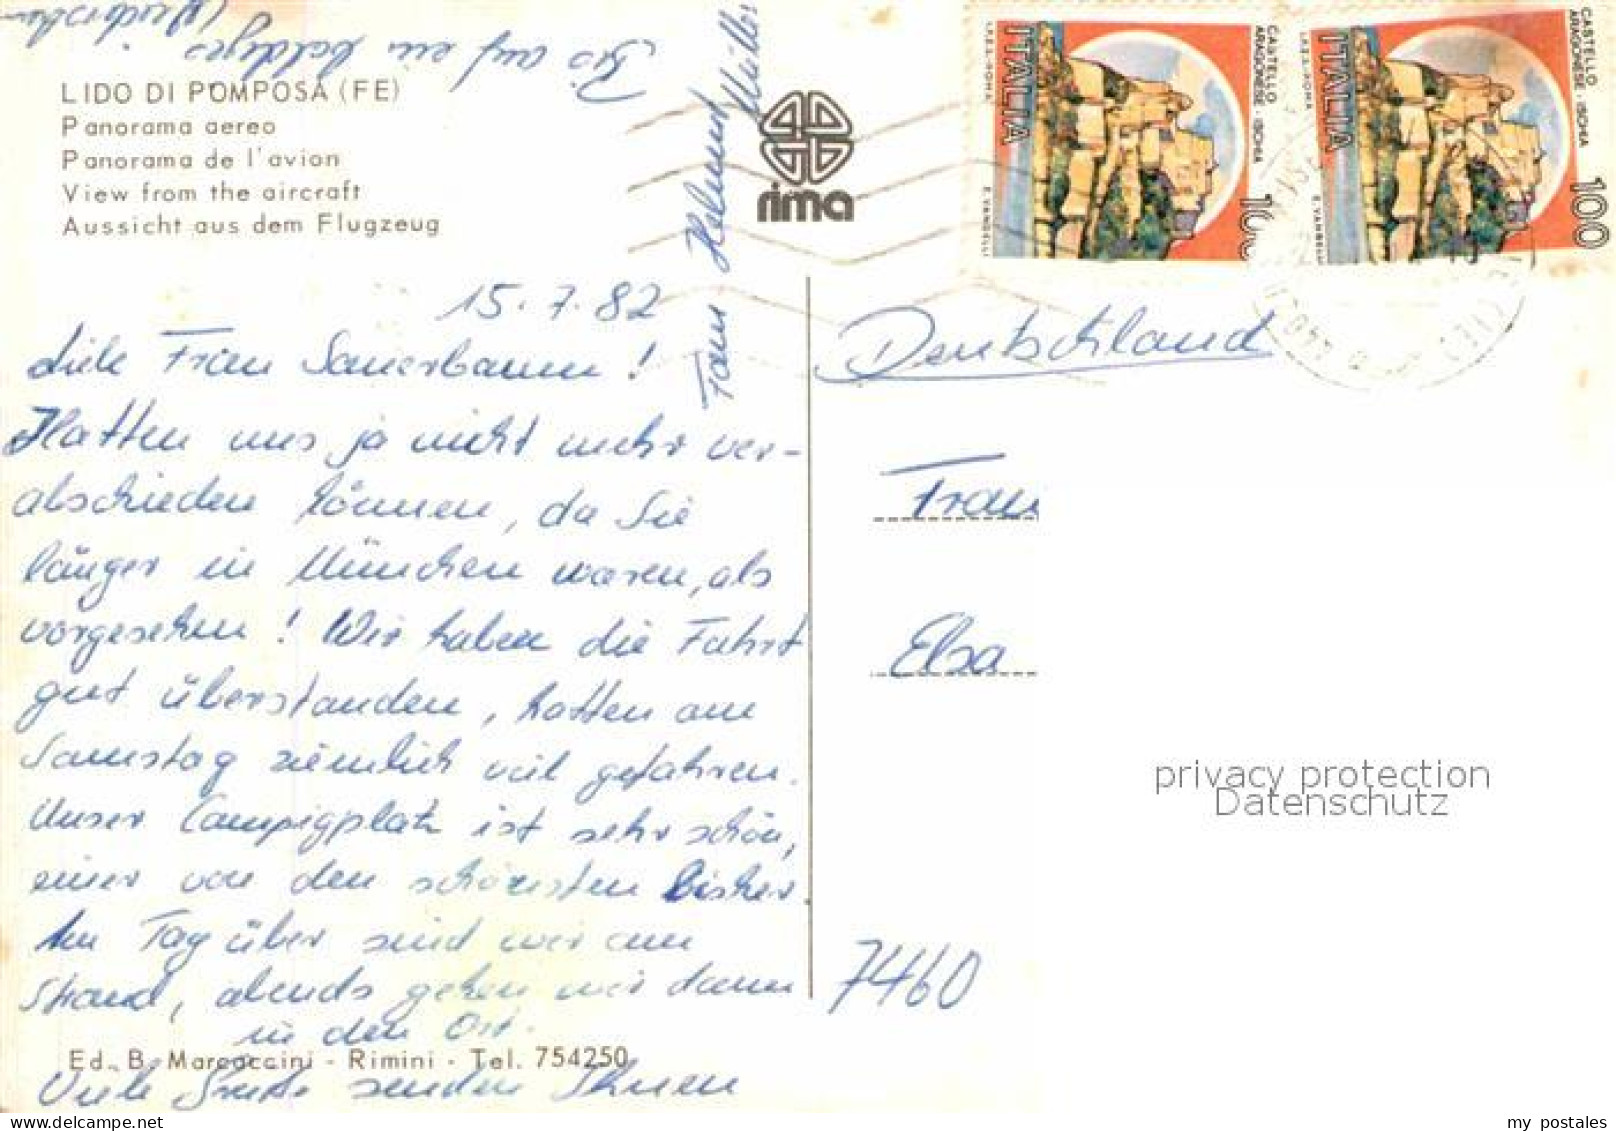 LIDO DI POMPOSA (FE)
Panorama aereo
Panorama de l'avion
View from the aircraft
Aussicht aus dem Flugzeug
rima
CASTELLO
ARAGONESE - ISCHIA
100
ITALIA
I.P.Z.S.-ROMA
CASTELLO
ARAGONESE - ISCHIA
100
ITALIA
I.P.Z.S.-ROMA
15.7.82
Liebe Frau Sauerbaum!
Hatten uns ja nicht mehr ver-
abschieden können, da Sie
länger in München waren, als
vorgesehen! Wir haben die Fahrt
gut überstanden, hatten am
Samstag ziemlich viel gefahren.
Unser Campigplatz ist sehr schön,
einer von den schönsten bisher.
Am Tag über sind wir am
Strand, abends gehen wir dann
in den Ort.
Ed. B. Marcaccini - Rimini - Tel. 754250
Viele Grüße senden Ihnen
Fam Helmut Müller
Bis auf ein baldiges
Deutschland
Frau
Elsa
7460
privacy protection
Datenschutz
my postales